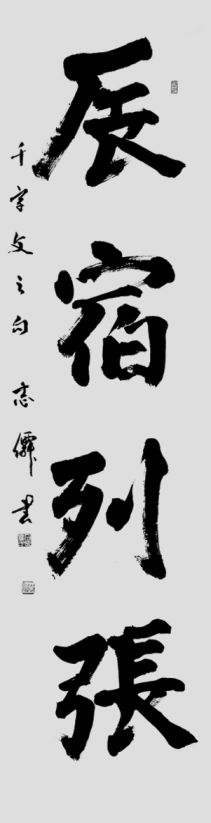 辰宿列張
千字文之句 志儛書